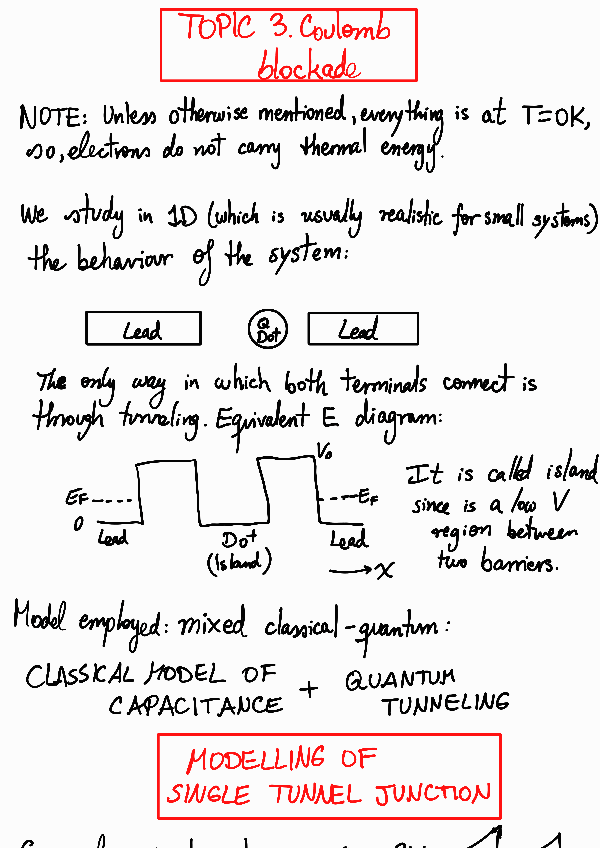 TOPIC 3. Coulomb
blockade
NOTE: Unless otherwise mentioned, everything is at T=0K,
so, electrons do not carry thermal energy.
We study in 1D (which is usually realistic for small systems)
the behaviour of the system:
Lead
Q
Dot
Lead
The only way in which both terminals connect is
through tunneling. Equivalent E diagram:
V₀
EF
EF
0
Lead
Dot
(Island)
Lead
x
It is called island
since is a low V
region between
two barriers.
Model employed: mixed classical-quantum:
CLASSICAL MODEL OF
CAPACITANCE
+
QUANTUM
TUNNELING
MODELLING OF
SINGLE TUNNEL JUNCTION